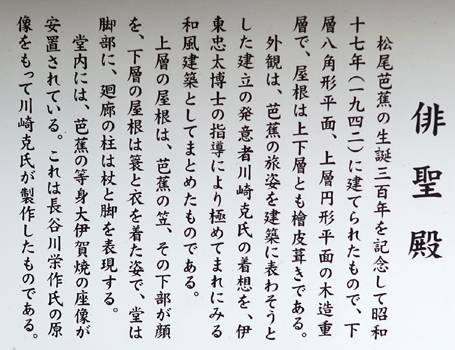 俳聖殿
松尾芭蕉の生誕三百年を記念して昭和
十七年（一九四二）に建てられたもので、下
層八角形平面、上層円形平面の木造重
層で、屋根は上下層とも檜皮葺きである。
外観は、芭蕉の旅姿を建築に表わそうと
した建立の発意者川崎克氏の着想を、伊
東忠太博士の指導により極めてまれにみる
和風建築としてまとめたものである。
上層の屋根は、芭蕉の笠、その下部が顔
を、下層の屋根は蓑と衣を着た姿で、堂は
脚部に、廻廊の柱は杖と脚を表現する。
堂内には、芭蕉の等身大伊賀焼の座像が
安置されている。これは長谷川栄作氏の原
像をもって川崎克氏が製作したものである。